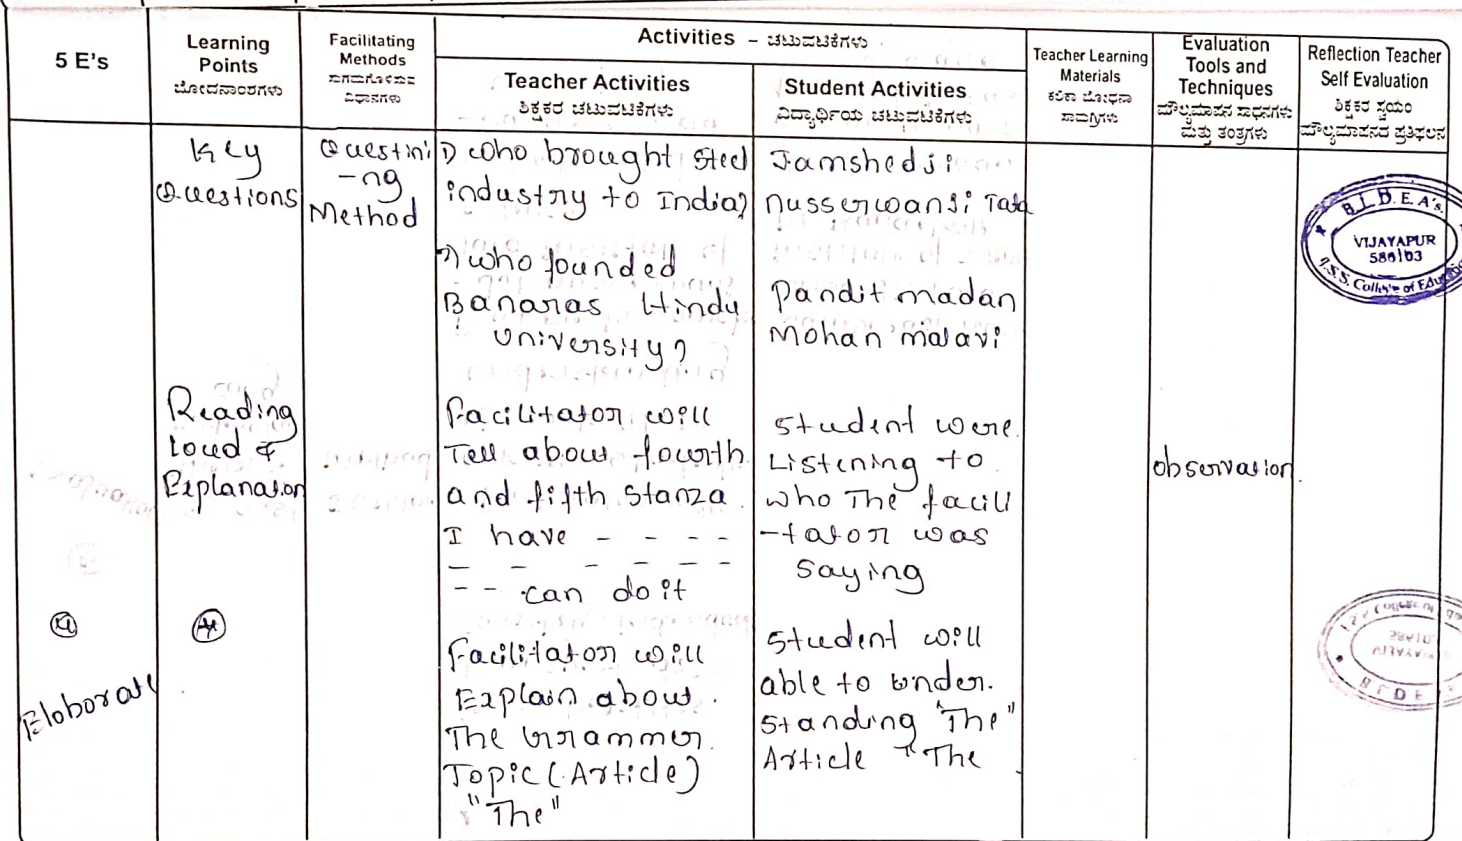 5 E's
Learning
Points
ಬೋಧನಾಂಶಗಳು
Facilitating
Methods
ಸುಗಮಗೊಳಿಸುವ
ವಿಧಾನಗಳು
Activities - ಚಟುವಟಿಕೆಗಳು
Teacher Activities
ಶಿಕ್ಷಕರ ಚಟುವಟಿಕೆಗಳು
Student Activities
ವಿದ್ಯಾರ್ಥಿಯ ಚಟುವಟಿಕೆಗಳು
Teacher Learning
Materials
ಕಲಿಕಾ ಬೋಧನಾ
ಸಾಮಗ್ರಿಗಳು
Evaluation
Tools and
Techniques
ಮೌಲ್ಯಮಾಪನ ಸಾಧನಗಳು
ಮತ್ತು ತಂತ್ರಗಳು
Reflection Teacher
Self Evaluation
ಶಿಕ್ಷಕರ ಸ್ವಯಂ
ಮೌಲ್ಯಮಾಪನದ ಪ್ರತಿಫಲನ
Key
Questions
Questini
-ng
Method
1) who brought steel
industry to India?
Jamshedji
nusserwanji Tata
2) who founded
Banaras Hindu
University?
Pandit madan
Mohan malavi
B.L.D.E.A's.
VIJAYAPUR
586103
J.S.S. College of Education
Reading
loud &
Explanation
Facilitator will
Tell about fourth
and fifth stanza
I have - - - -
- - - - - -
- - can do it
Student were
Listening to
who The facili
-tator was
saying
observation
4
4
Eloborate
Facilitator will
Explain about
The Grammer
Topic (Article)
"The"
Student will
able to under.
standing "The"
Article "The